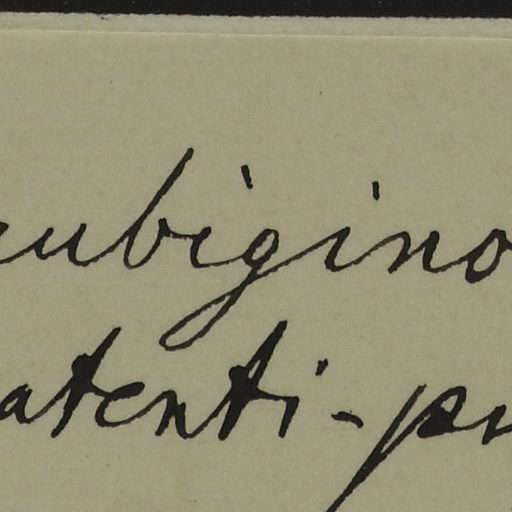 rubigino
atenti-pu